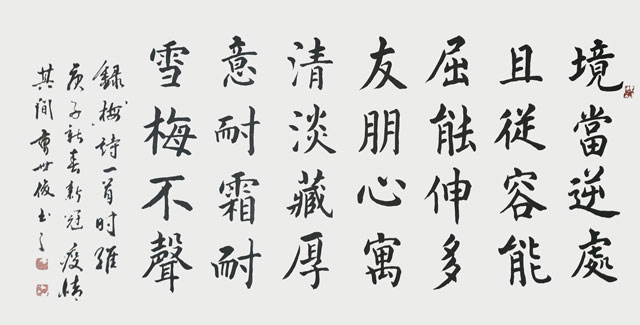 境當逆處
且從容能
屈能伸多
友朋心寓
清淡藏厚
意耐霜耐
雪梅不聲
録梅詩一首时維
庚子新春新冠疫情
其间曹世俊书之